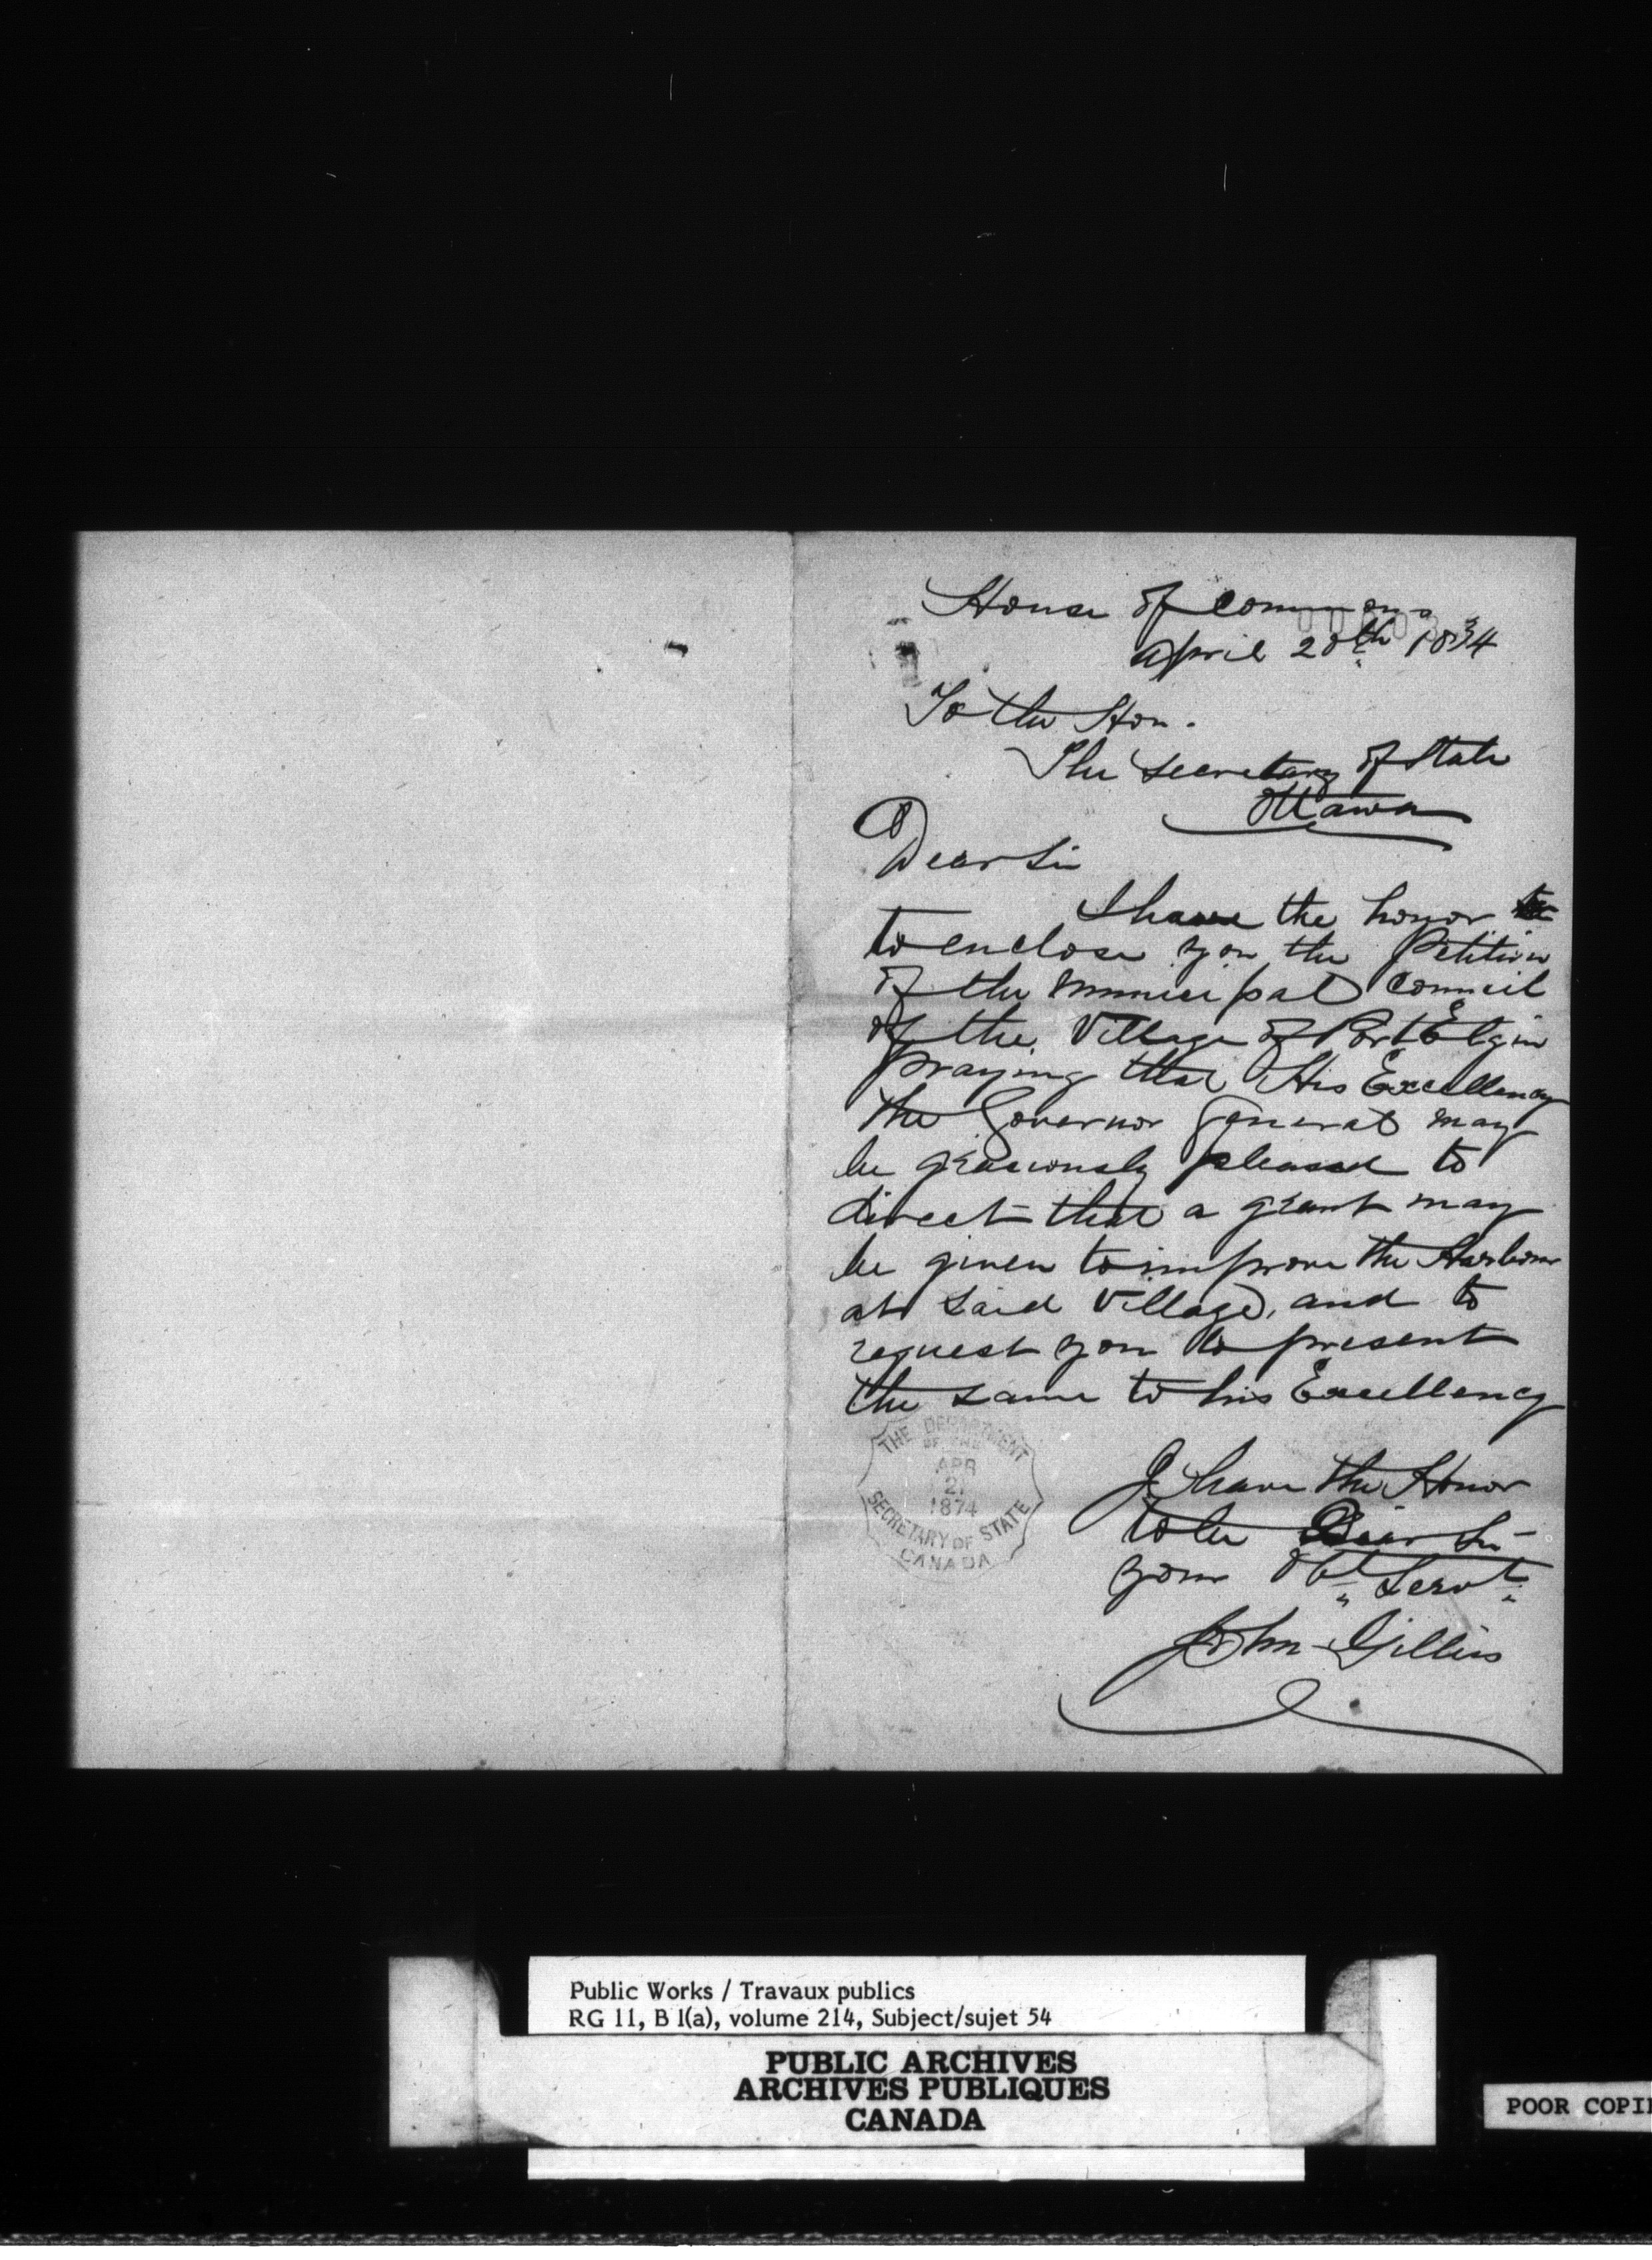 House of Commons
April 20th 1874
To the Hon.
The Secretary of State
Ottawa
Dear Sir
I have the honor
to enclose you the Petition
of the Municipal Council
of the Village of Port Elgin
praying that His Excellency
the Governor General may
be graciously pleased to
direct that a grant may
be given to improve the Harbour
at said Village, and to
request you to present
the same to his Excellency
I have the Honor
to be Dear Sir
your Obt Servt
John Gillies
THE DEPARTMENT
OF THE
APR
21
1874
SECRETARY OF STATE
CANADA
Public Works / Travaux publics
RG 11, B 1(a), volume 214, Subject/sujet 54
PUBLIC ARCHIVES
ARCHIVES PUBLIQUES
CANADA
POOR COPI